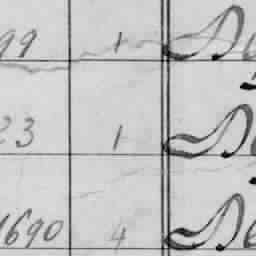 99 1 De
23 1 De
1690 4 De